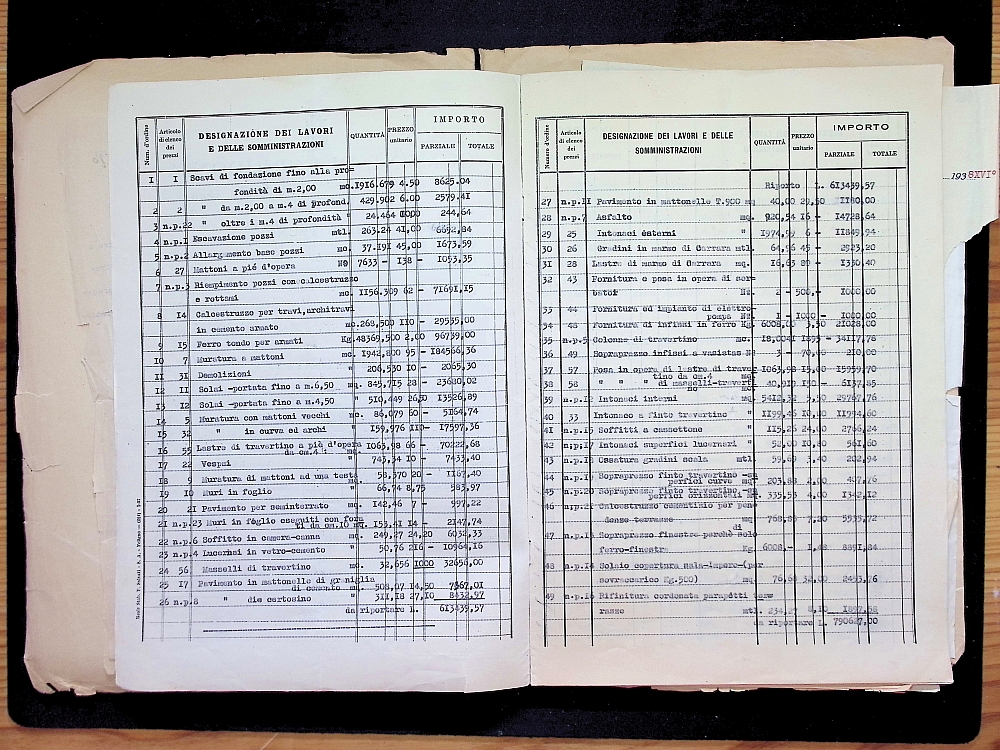 Num. d'ordine
Articolo di elenco dei prezzi
DESIGNAZIONE DEI LAVORI
E DELLE SOMMINISTRAZIONI
QUANTITÀ
PREZZO unitario
IMPORTO
PARZIALE
TOTALE
1 1 Scavi di fondazione fino alla pro=
fondità di m.2,00 mc. 1916.679 4.50 8625.04
2 2 " da m.2,00 a m.4 di profond. 429.902 6.00 2579.41
3 n.p.22 " oltre i m.4 di profondità " 24.464 244,64
4 n.p.1 Escavazione pozzi mtl. 263.24 41,00
5 n.p.2 Allargamento base pozzi mc. 37.191 45,00 1673,59
6 27 Mattoni a piè d'opera N° 7633 - 138 -
7 n.p.3 Riempimento pozzi con calcestruzzo
e rottami mc. 1156.309 62 - 71691,15
8 14 Calcestruzzo per travi,architravi
in cemento armato mc. 268,500 110 - 29535,00
9 15 Ferro tondo per armati Kg. 48369,500 2,00 96739,00
10 7 Muratura a mattoni mc. 1942,800 95 - 184566,36
11 31 Demolizioni " 206,530 10 - 2065,30
12 11 Solai -portata fino a m.6,50 mq. 845,715 28 - 23680,02
13 12 Solai -portata fino a m.4,50 " 510,449 26,50 13526,89
14 5 Muratura con mattoni vecchi mc. 86,079 60 - 5164,74
15 32 " in curva ed archi " 159,976 110 - 17597,36
16 55 Lastre di travertino a piè d'opera
da cm.4 : mq. 1063,98 66 - 70222,68
17 22 Vespai " 743,34 10 - 7433,40
18 9 Muratura di mattoni ad una testa
mq. 58,370 20 - 1167,40
19 10 Muri in foglio " 66,74 8,75 583,97
20 21 Pavimento per seminterrato mq. 142,46 7 - 997,22
21 n.p.23 Muri in foglio eseguiti con fora
ti da cm.10 mq. 153,41 14 - 2147,74
22 n.p.6 Soffitto in camera-canna mq. 249,27 24,20 6032,33
23 n.p.4 Lucernai in vetro-cemento " 50,76 216 - 10964,16
24 56 Masselli di travertino mc. 32,656 1000 32656,00
25 17 Pavimento in mattonelle di graniglia
di cemento mq. 508,07 14,50 7367,01
26 n.p.8 " die certosino " 311,18 27,10 8432,97
da riportare L. 613439,57
Numero d'ordine
Articolo di elenco dei prezzi
DESIGNAZIONE DEI LAVORI E DELLE
SOMMINISTRAZIONI
QUANTITÀ
PREZZO unitario
IMPORTO
PARZIALE
TOTALE
Riporto L. 613439,57
27 n.p.11 Pavimento in mattonelle T.900 mq 40,00 29,50 1180,00
28 n.p.7 Asfalto mq. 920,54 16 - 14728,64
29 25 Intonaci esterni " 1974,99 6 - 11849,94
30 26 Gradini in marmo di Carrara mtl. 64,96 45 - 2923,20
31 28 Lastre di marmo di Carrara mq. 16,63 80 - 1330,40
32 43 Fornitura e posa in opera di ser-
batoi N°. 2 - 500,- 1000,00
33 44 Fornitura ed impianto di elettro-
pompa N°. 1 - 1000 - 1000,00
34 48 Fornitura di infissi in ferro Kg. 6008,00 3,50 21028,00
35 n.p.5 Colonne di travertino mc. 18,0041 1895 - 34117,78
36 49 Sopraprezzo infissi a vasistas N° 3 - 70,00 210,00
37 57 Posa in opera di lastre di traver
tino da cm.4 mq. 1063,98 15,00 15959,70
38 58 " " " di masselli-traverti
no mc. 40,919 150 - 6137,85
39 n.p.12 Intonaci interni mq. 5412,32 5,50 29767,76
40 33 Intonaco a finto travertino " 1199,46 10,00 11994,60
41 n.p.15 Soffitti a cassettone " 115,26 24,00 2766,24
42 n.p.17 Intonaci superfici lucernari " 52,00 10,80 561,60
43 n.p.18 Ossatura gradini scala mtl. 59,69 3,40 202,94
44 n.p.19 Sopraprezzo finto travertino -su
perfici curve mq. 203,88 2,00 407,76
45 n.p.20 Sopraprezzo finto travertino -su
perfici orizzontali mq. 335,53 4,00 1342,12
46 n.p.21 Calcestruzzo cementizio per pen
denze terrazze mq. 768,85 7,20 5535,72
47 n.p.13 Sopraprezzo finestre perchè solo
di
ferro-finestra Kg. 6008,- 1,48 8891,84
48 n.p.14 Solaio copertura sala-impero-(per
sovraccarico Kg.500) mq. 76,68 32,00 2453,76
49 n.p.16 Rifinitura cordonata parapetti terr
razze mtl. 234,27 8,10 1897,58
da riportare L. 790627,00
193 8XVI°